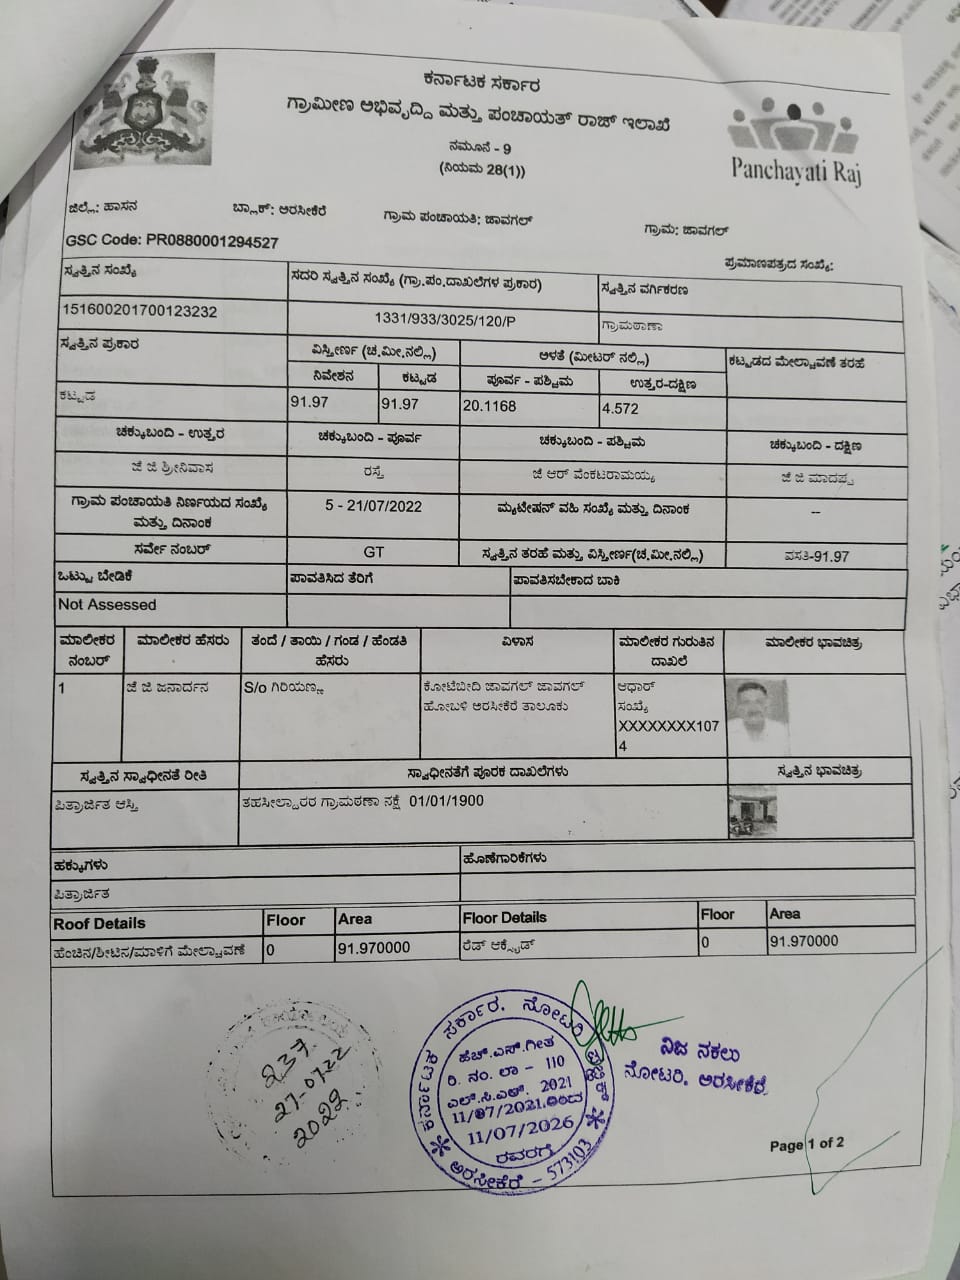 ಕರ್ನಾಟಕ ಸರ್ಕಾರ
ಗ್ರಾಮೀಣ ಅಭಿವೃದ್ದಿ ಮತ್ತು ಪಂಚಾಯತ್ ರಾಜ್ ಇಲಾಖೆ
ನಮೂನೆ - 9
(ನಿಯಮ 28(1))
Panchayati Raj
ಜಿಲ್ಲೆ: ಹಾಸನ ಬ್ಲಾಕ್: ಅರಸೀಕೆರೆ ಗ್ರಾಮ ಪಂಚಾಯತಿ: ಜಾವಗಲ್ ಗ್ರಾಮ: ಜಾವಗಲ್
GSC Code: PR0880001294527 ಪ್ರಮಾಣಪತ್ರದ ಸಂಖ್ಯೆ:
ಸ್ವತ್ತಿನ ಸಂಖ್ಯೆ ಸದರಿ ಸ್ವತ್ತಿನ ಸಂಖ್ಯೆ (ಗ್ರಾ.ಪಂ.ದಾಖಲೆಗಳ ಪ್ರಕಾರ) ಸ್ವತ್ತಿನ ವರ್ಗಿಕರಣ
151600201700123232 1331/933/3025/120/P ಗ್ರಾಮಠಾಣಾ
ಸ್ವತ್ತಿನ ಪ್ರಕಾರ ವಿಸ್ತೀರ್ಣ (ಚ.ಮೀ.ನಲ್ಲಿ) ಅಳತೆ (ಮೀಟರ್ ನಲ್ಲಿ) ಕಟ್ಟಡದ ಮೇಲ್ಚಾವಣೆ ತರಹೆ
ನಿವೇಶನ ಕಟ್ಟಡ ಪೂರ್ವ - ಪಶ್ಚಿಮ ಉತ್ತರ-ದಕ್ಷಿಣ
ಕಟ್ಟಡ 91.97 91.97 20.1168 4.572
ಚಕ್ಕುಬಂದಿ - ಉತ್ತರ ಚಕ್ಕುಬಂದಿ - ಪೂರ್ವ ಚಕ್ಕುಬಂದಿ - ಪಶ್ಚಿಮ ಚಕ್ಕುಬಂದಿ - ದಕ್ಷಿಣ
ಜೆ ಜಿ ಶ್ರೀನಿವಾಸ ರಸ್ತೆ ಜೆ ಆರ್ ವೆಂಕಟರಾಮಯ್ಯ ಜೆ ಜಿ ಮಾದಪ್ಪ
ಗ್ರಾಮ ಪಂಚಾಯತಿ ನಿರ್ಣಯದ ಸಂಖ್ಯೆ 5 - 21/07/2022 ಮ್ಯುಟೇಷನ್ ವಹಿ ಸಂಖ್ಯೆ ಮತ್ತು ದಿನಾಂಕ --
ಮತ್ತು ದಿನಾಂಕ
ಸರ್ವೇ ನಂಬರ್ GT ಸ್ವತ್ತಿನ ತರಹೆ ಮತ್ತು ವಿಸ್ತೀರ್ಣ(ಚ.ಮೀ.ನಲ್ಲಿ) ವಸತಿ-91.97
ಒಟ್ಟು ಬೇಡಿಕೆ ಪಾವತಿಸಿದ ತೆರಿಗೆ ಪಾವತಿಸಬೇಕಾದ ಬಾಕಿ
Not Assessed
ಮಾಲೀಕರ ಮಾಲೀಕರ ಹೆಸರು ತಂದೆ / ತಾಯಿ / ಗಂಡ / ಹೆಂಡತಿ ವಿಳಾಸ ಮಾಲೀಕರ ಗುರುತಿನ ಮಾಲೀಕರ ಭಾವಚಿತ್ರ
ನಂಬರ್ ಹೆಸರು ದಾಖಲೆ
1 ಜೆ ಜಿ ಜನಾರ್ದನ S/o ಗಿರಿಯಣ್ಣ ಕೋಟೆಬೀದಿ ಜಾವಗಲ್ ಜಾವಗಲ್ ಆಧಾರ್
ಹೋಬಳಿ ಅರಸೀಕೆರೆ ತಾಲೂಕು ಸಂಖ್ಯೆ
XXXXXXXX107
4
ಸ್ವತ್ತಿನ ಸ್ವಾಧೀನತೆ ರೀತಿ ಸ್ವಾಧೀನತೆಗೆ ಪೂರಕ ದಾಖಲೆಗಳು ಸ್ವತ್ತಿನ ಭಾವಚಿತ್ರ
ಪಿತ್ರಾರ್ಜಿತ ಆಸ್ತಿ ತಹಸೀಲ್ದಾರರ ಗ್ರಾಮಠಣಾ ನಕ್ಷೆ 01/01/1900
ಹಕ್ಕುಗಳು ಹೊಣೆಗಾರಿಕೆಗಳು
ಪಿತ್ರಾರ್ಜಿತ
Roof Details Floor Area Floor Details Floor Area
ಹೆಂಚಿನ/ಶೀಟಿನ/ಮಾಳಿಗೆ ಮೇಲ್ಚಾವಣೆ 0 91.970000 ರೆಡ್ ಆಕ್ಸೈಡ್ 0 91.970000
237
27-07-22
2022
ಕರ್ನಾಟಕ ಸರ್ಕಾರ. ನೋಟರಿ ಪಬ್ಲಿಕ್
ಹೆಚ್.ಎಸ್.ಗೀತ
ರಿ. ನಂ. ಲಾ - 110
ಎಲ್.ಸಿ.ಎಲ್. 2021
11/07/2021.ರಿಂದ
11/07/2026
ರವರಗೆ
ಅರಸೀಕೆರೆ - 573103
ನಿಜ ನಕಲು
ನೋಟರಿ. ಅರಸೀಕೆರೆ.
Page 1 of 2